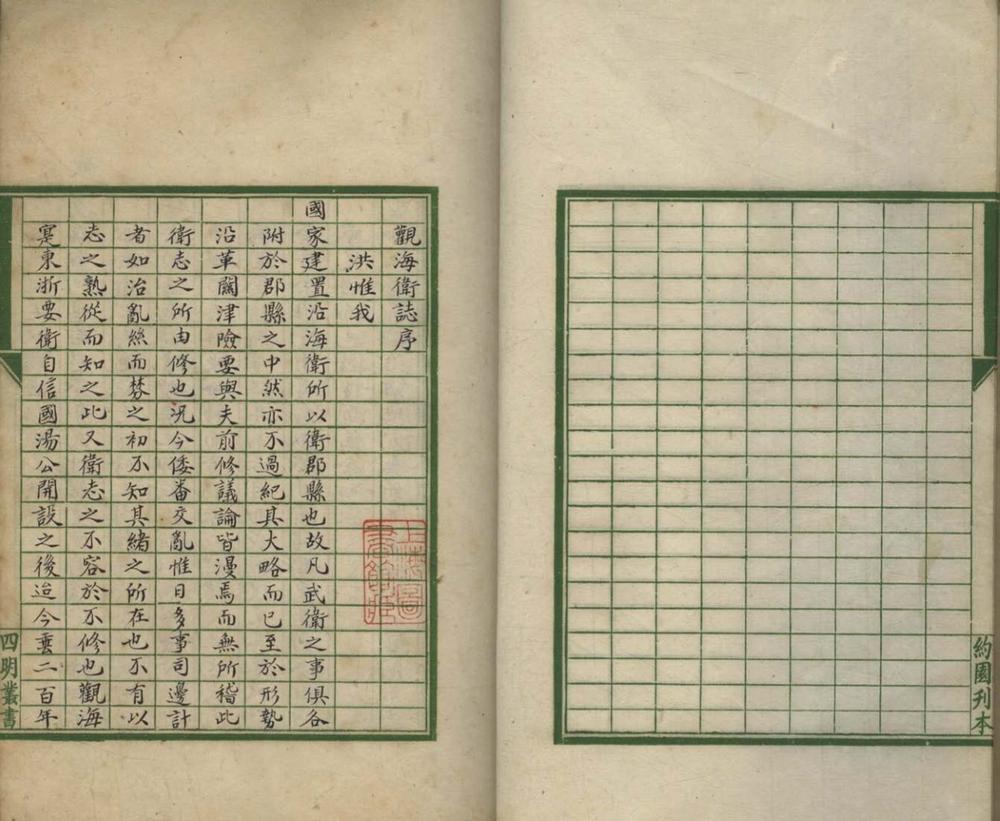 約園刊本
觀海衛誌序
洪惟我
國家建置沿海衛所以衛郡縣也故凡武衛之事俱各
附於郡縣之中然亦不過紀其大略而已至於形勢
沿革關津險要與夫前修議論皆漫焉而無所稽此
衛志之所由修也况今倭番交亂惟日多事司邊計
者如治亂絲而棼之初不知其緒之所在也不有以
志之孰從而知之此又衛志之不容於不修也觀海
寔東浙要衝自信國湯公開設之後迨今垂二百年
四明叢書
上海圖
書館藏